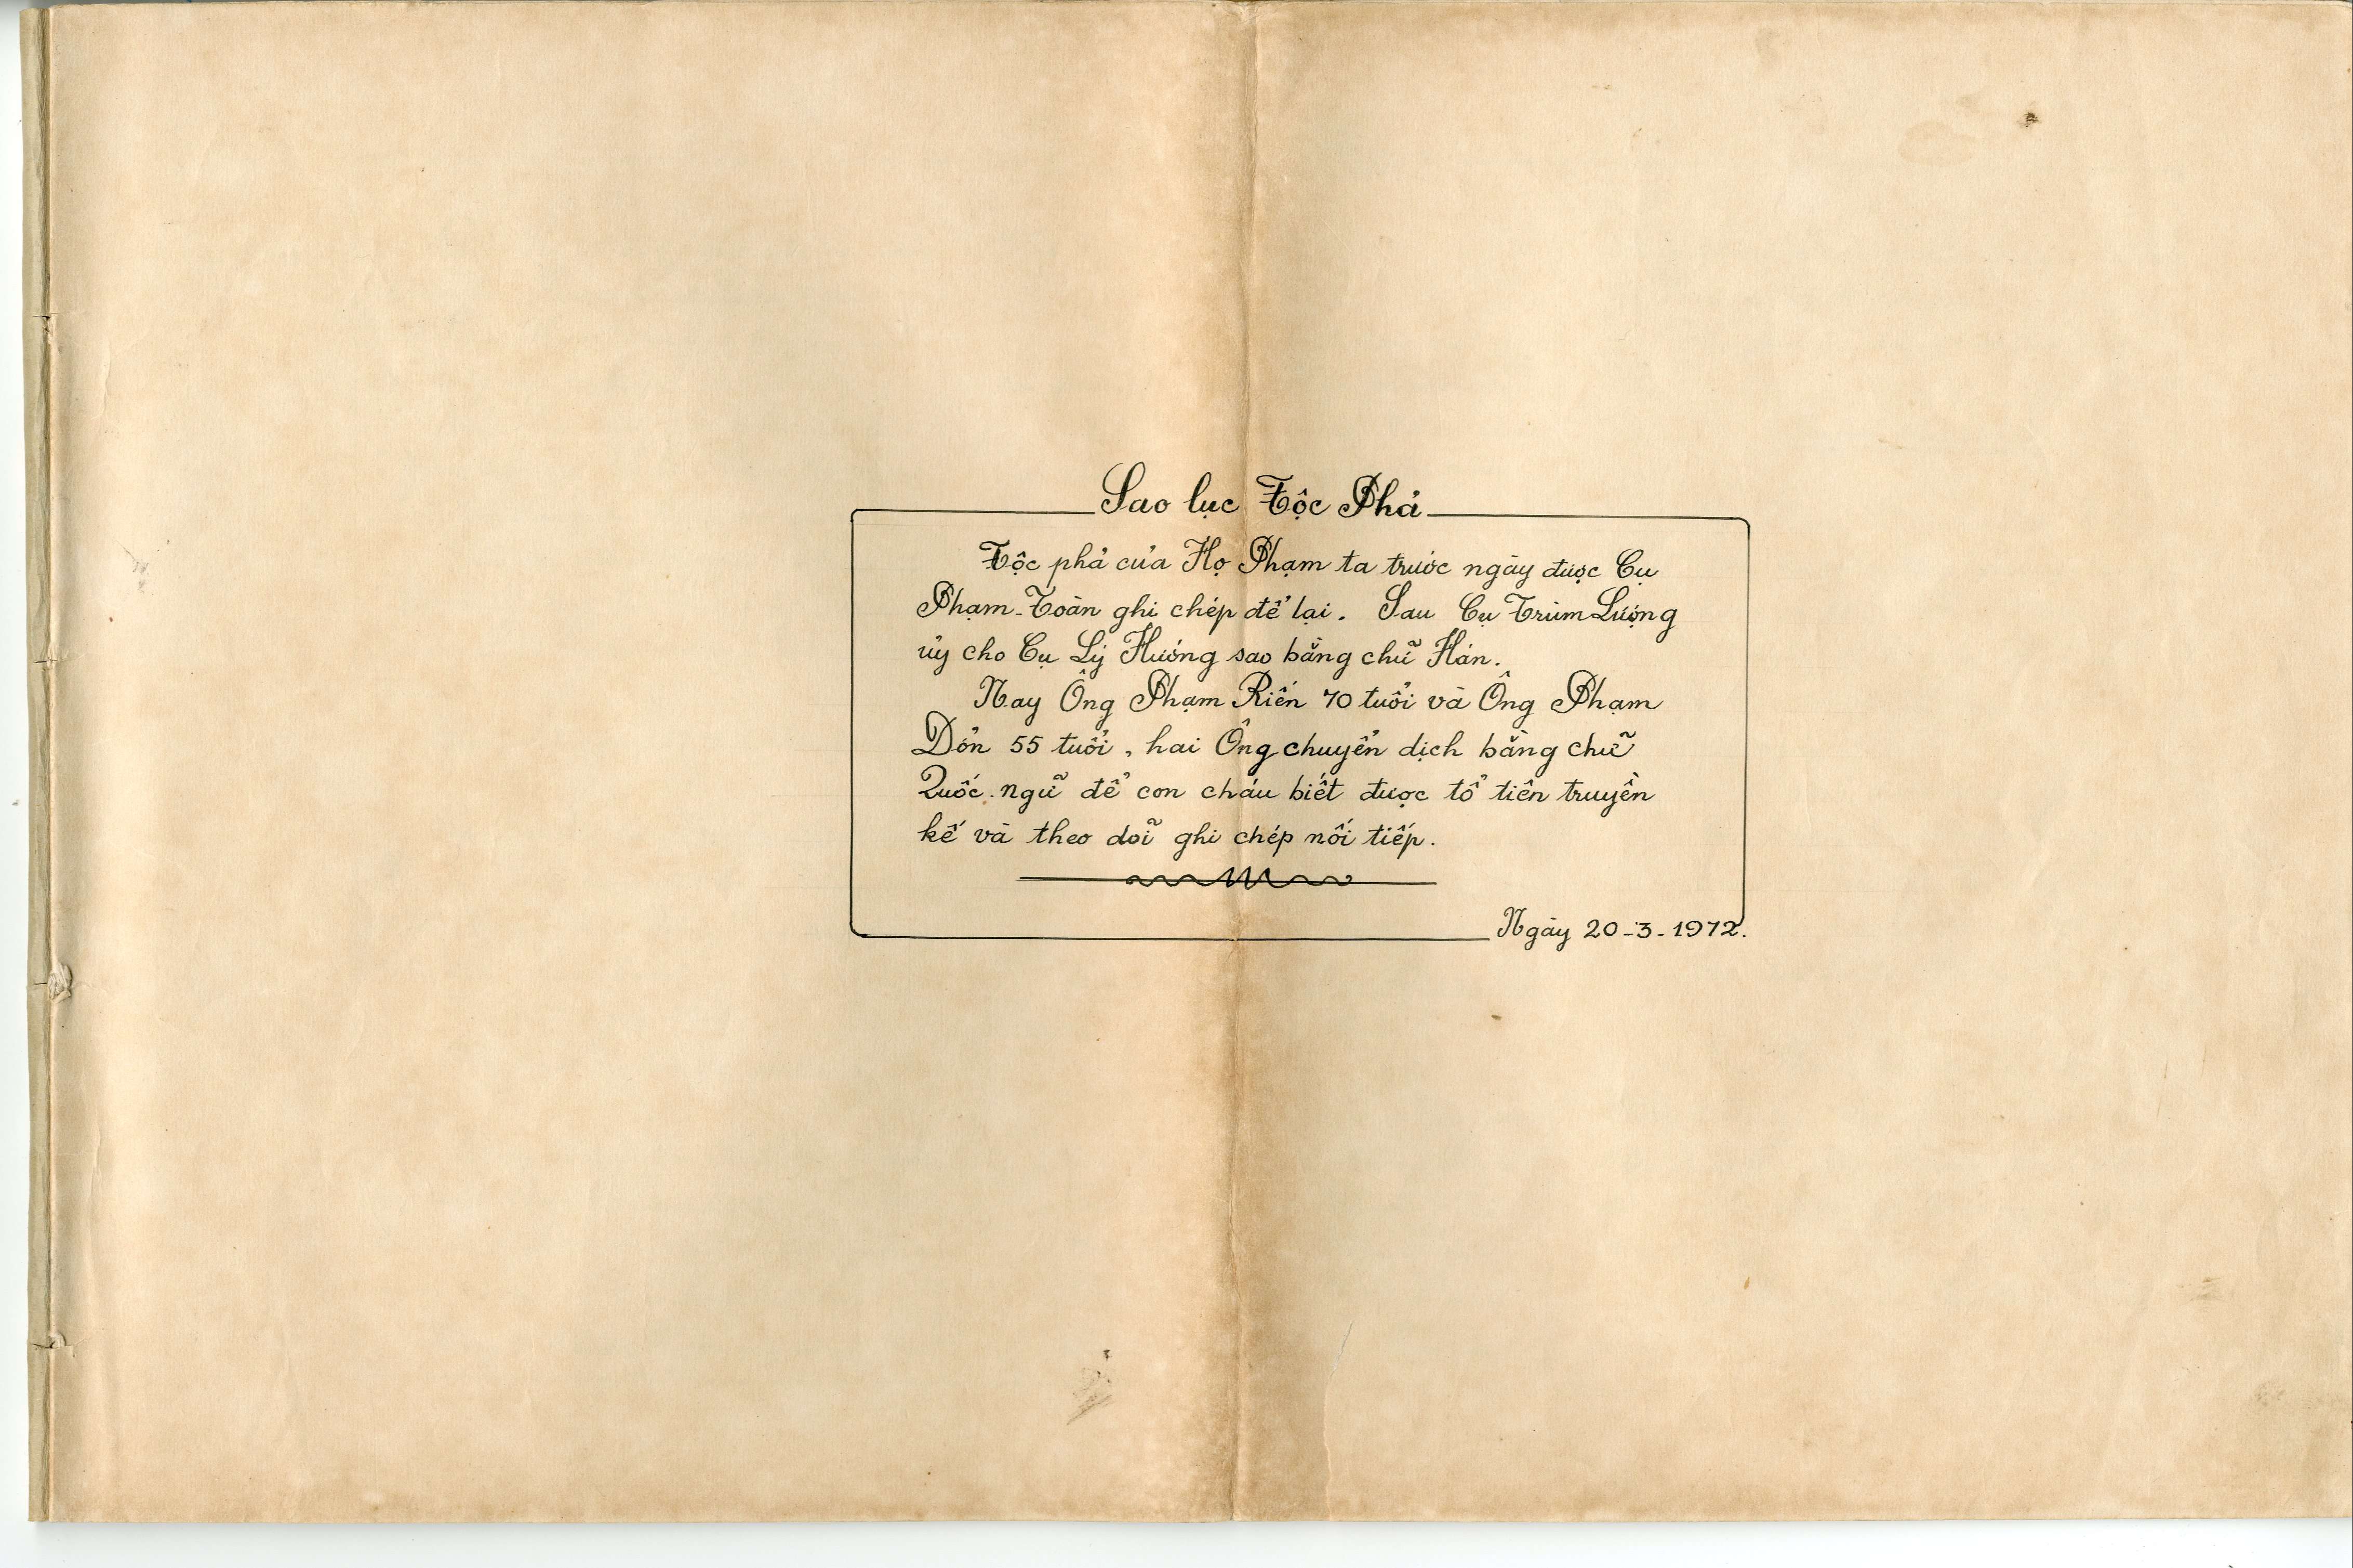 Sao lục Tộc Phả
Tộc phả của Họ Phạm ta trước ngày được Cụ
Phạm-Toàn ghi chép để lại. Sau Cụ Trùm Lượng
ủy cho Cụ Lý Hướng sao bằng chữ Hán.
Nay Ông Phạm Riến 70 tuổi và Ông Phạm
Dổn 55 tuổi, hai Ông chuyển dịch bằng chữ
Quốc.ngữ để con cháu biết được tổ tiên truyền
kế và theo dõi ghi chép nối tiếp.
Ngày 20-3-1972.